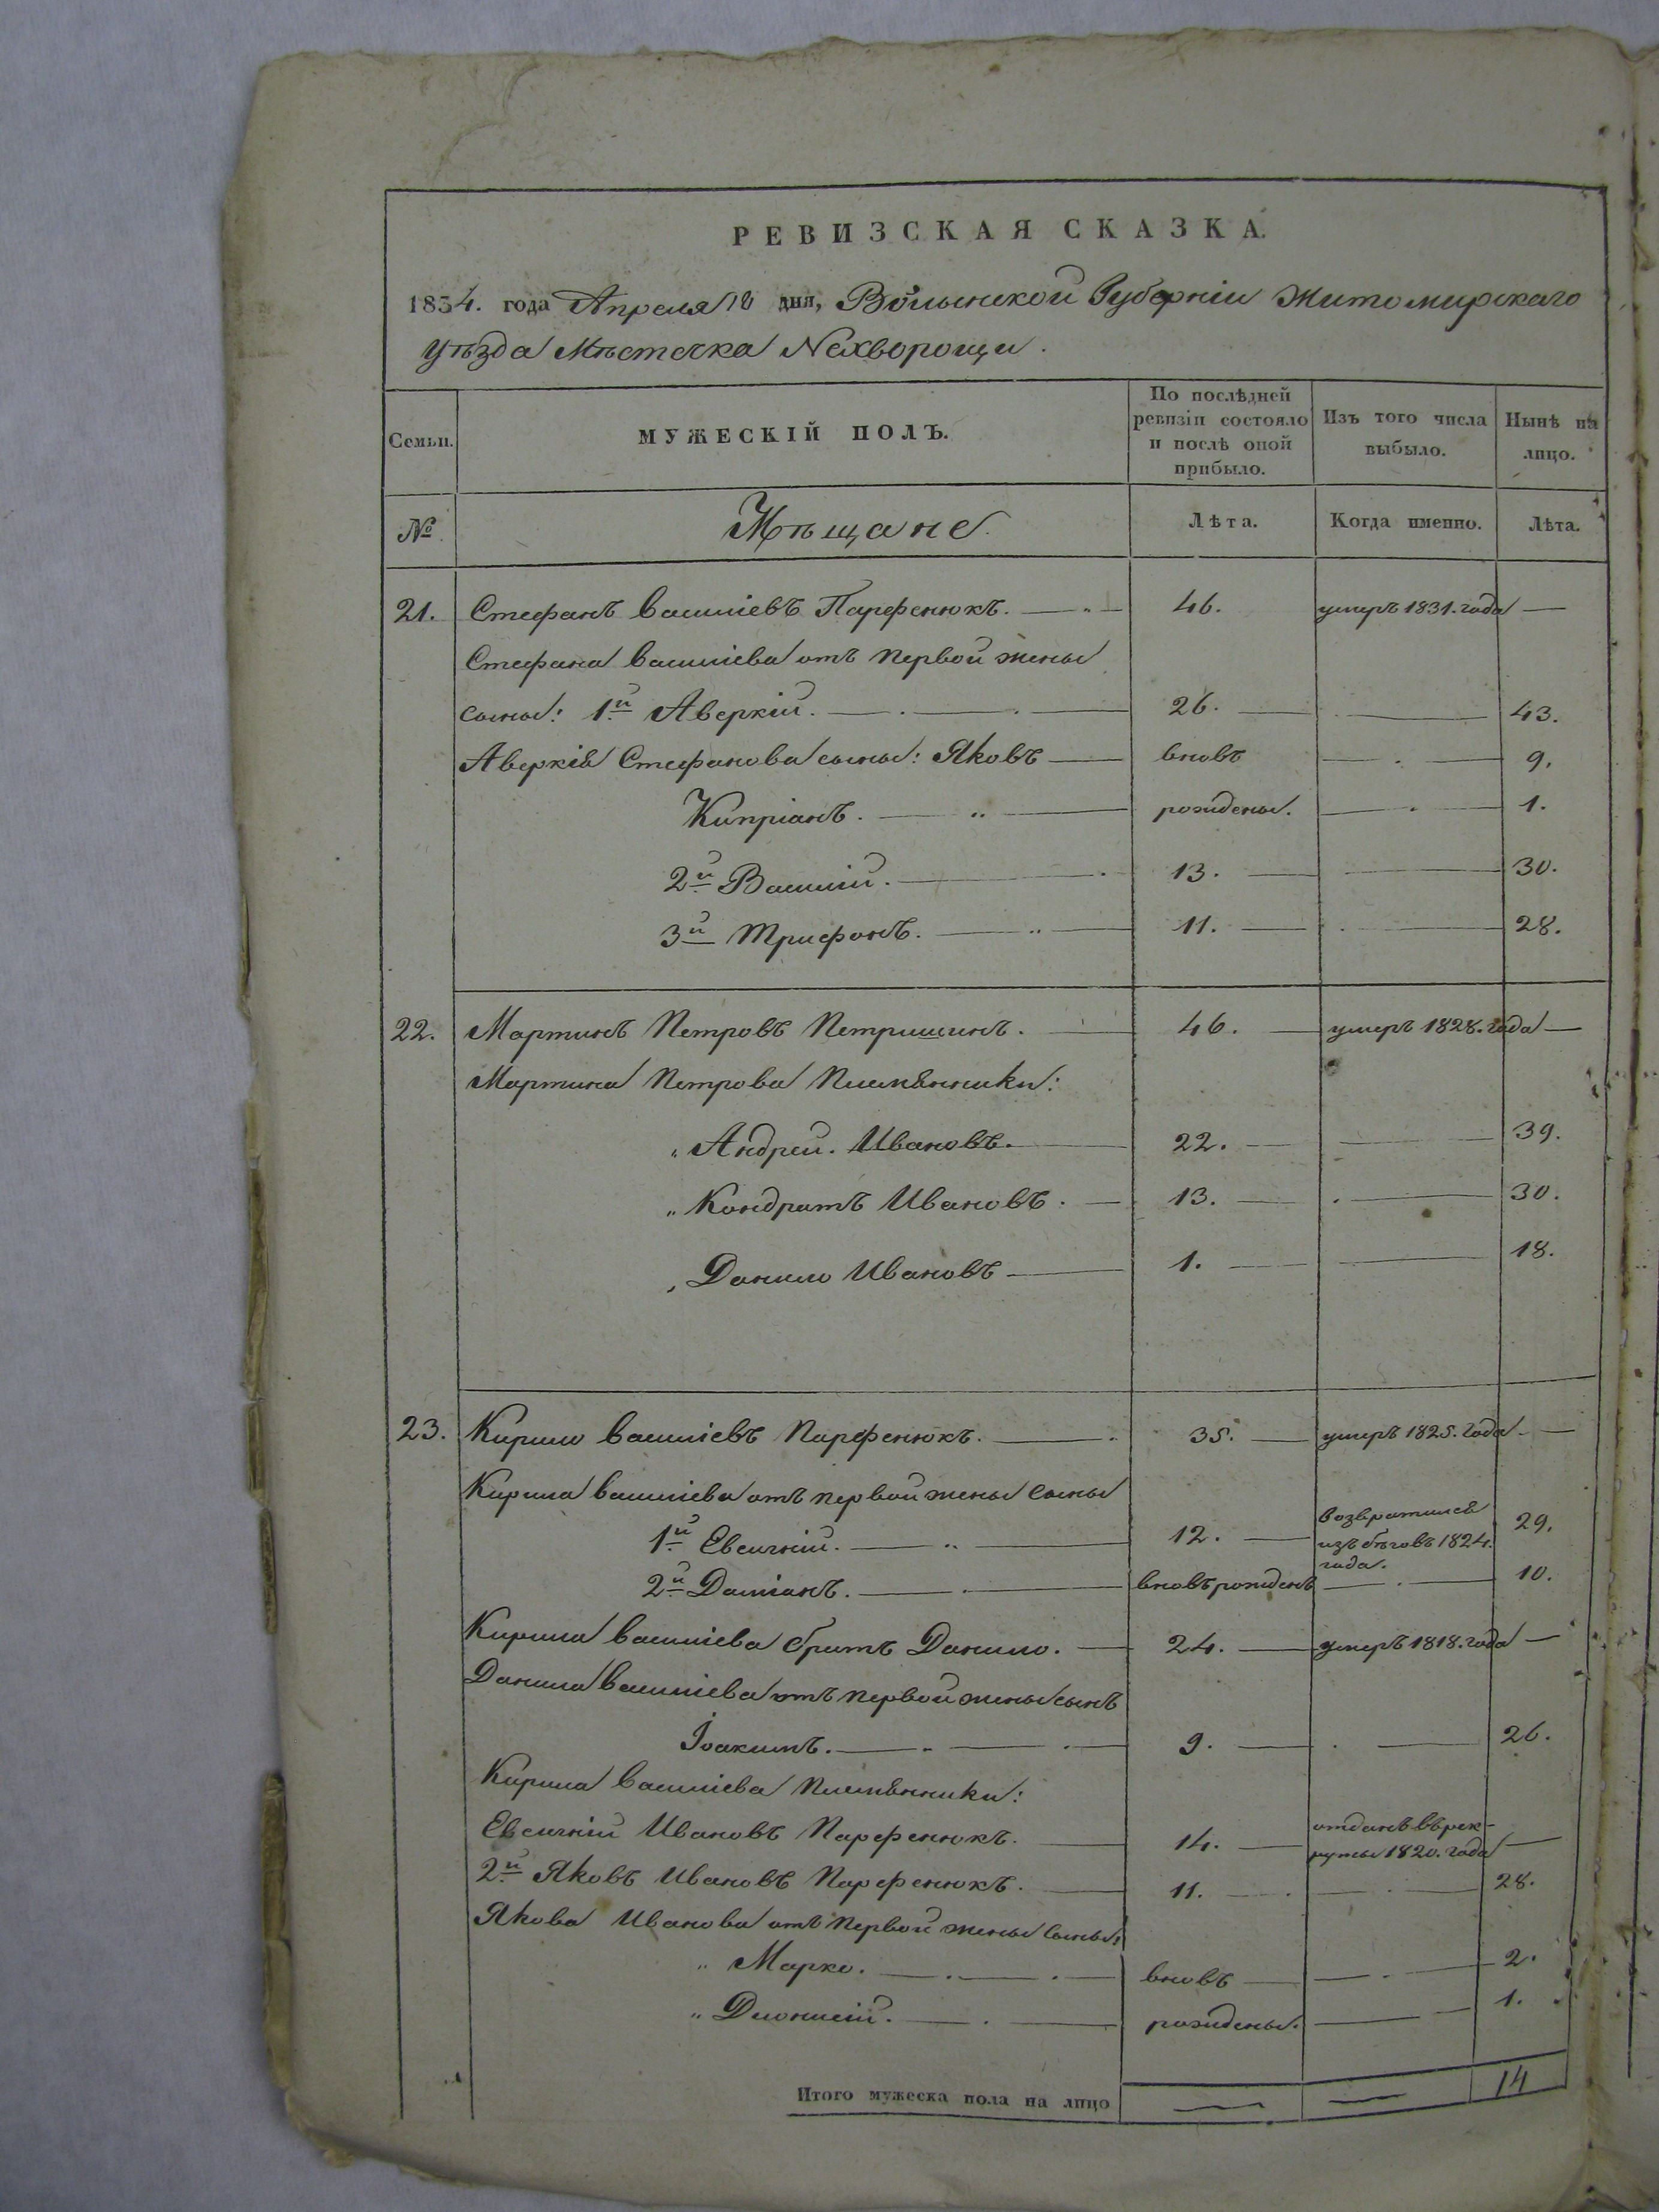 РЕВИЗСКАЯ СКАЗКА.
1834. года Апреля 18 дня, Волынской Губерніи Житомирскаго
уѣзда Мѣстечка Нехворощи.
Семьи.
МУЖЕСКІЙ ПОЛЪ.
По послѣдней ревизіи состояло и послѣ оной прибыло.
Изъ того числа выбыло.
Нынѣ на лицо.
№
Мѣщане.
Лѣта.
Когда именно.
Лѣта.
21. Стефанъ Василіевъ Парфенюкъ. 46. умеръ 1831. года
Стефана Василіева отъ первой жены
сыны: 1й Аверкій. 26. 43.
Аверкія Стефанова сыны: Яковъ вновь 9.
Кипріанъ. рождены. 1.
2й Василій. 13. 30.
3й Трифонъ. 11. 28.
22. Мартинъ Петровъ Петришинъ. 46. умеръ 1828. года
Мартина Петрова племянники:
„ Андрей. Ивановъ. 22. 39.
„ Кондратъ Ивановъ. 13. 30.
„ Данило Ивановъ 1. 18.
23. Кирило Василіевъ Парфенюкъ. 35. умеръ 1825. года
Кирила Василіева отъ первой жены сыны
1й Евсигній. 12. возвратился изъ бѣговъ 1824. года. 29.
2й Даміанъ. вновь рожденъ 10.
Кирила Василіева братъ Данило. 24. умеръ 1818. года
Данила Василіева отъ первой жены сынъ
Іоакимъ. 9. 26.
Кирила Василіева племянники:
Евсигній Ивановъ Парфенюкъ. 14. отданъ въ рекруты 1820. года
2й Яковъ Ивановъ Парфенюкъ. 11. 28.
Якова Иванова отъ первой жены сыны:
„ Марко. вновь 2.
„ Діонисій. рождены. 1.
Итого мужеска пола на лицо 14